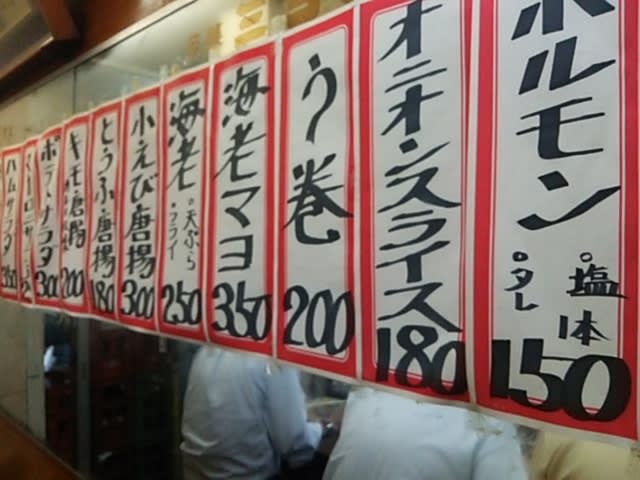 ホルモン
塩
タレ
1本
150
オニオンスライス
180
う巻
200
海老マヨ
350
海老
天ぷら
フライ
250
小えび唐揚
300
とうふ唐揚
180
キモ唐揚
200
ポテトサラダ
300
ハムサラダ